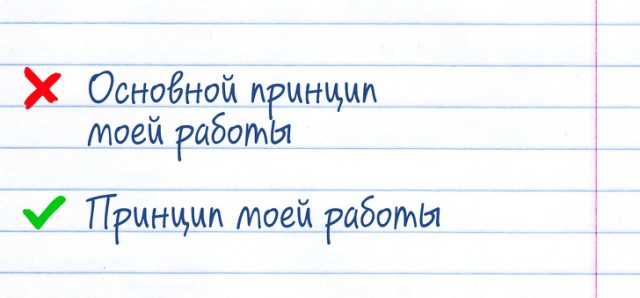 Основной принцип
моей работы
Принцип моей работы